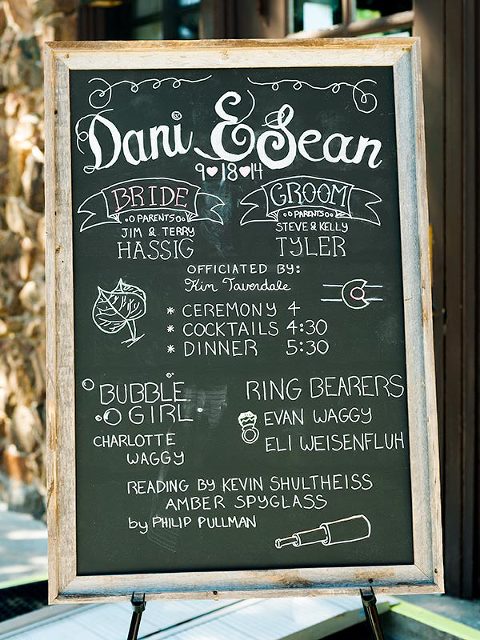 Dani & Sean
9♥18♥14
BRIDE
PARENTS
JIM & TERRY
HASSIG
GROOM
PARENTS
STEVE & KELLY
TYLER
OFFICIATED BY:
Kim Taverdale
* CEREMONY 4
* COCKTAILS 4:30
* DINNER 5:30
BUBBLE
GIRL
CHARLOTTE
WAGGY
RING BEARERS
EVAN WAGGY
ELI WEISENFLUH
READING BY KEVIN SHULTHEISS
AMBER SPYGLASS
by PHILIP PULLMAN